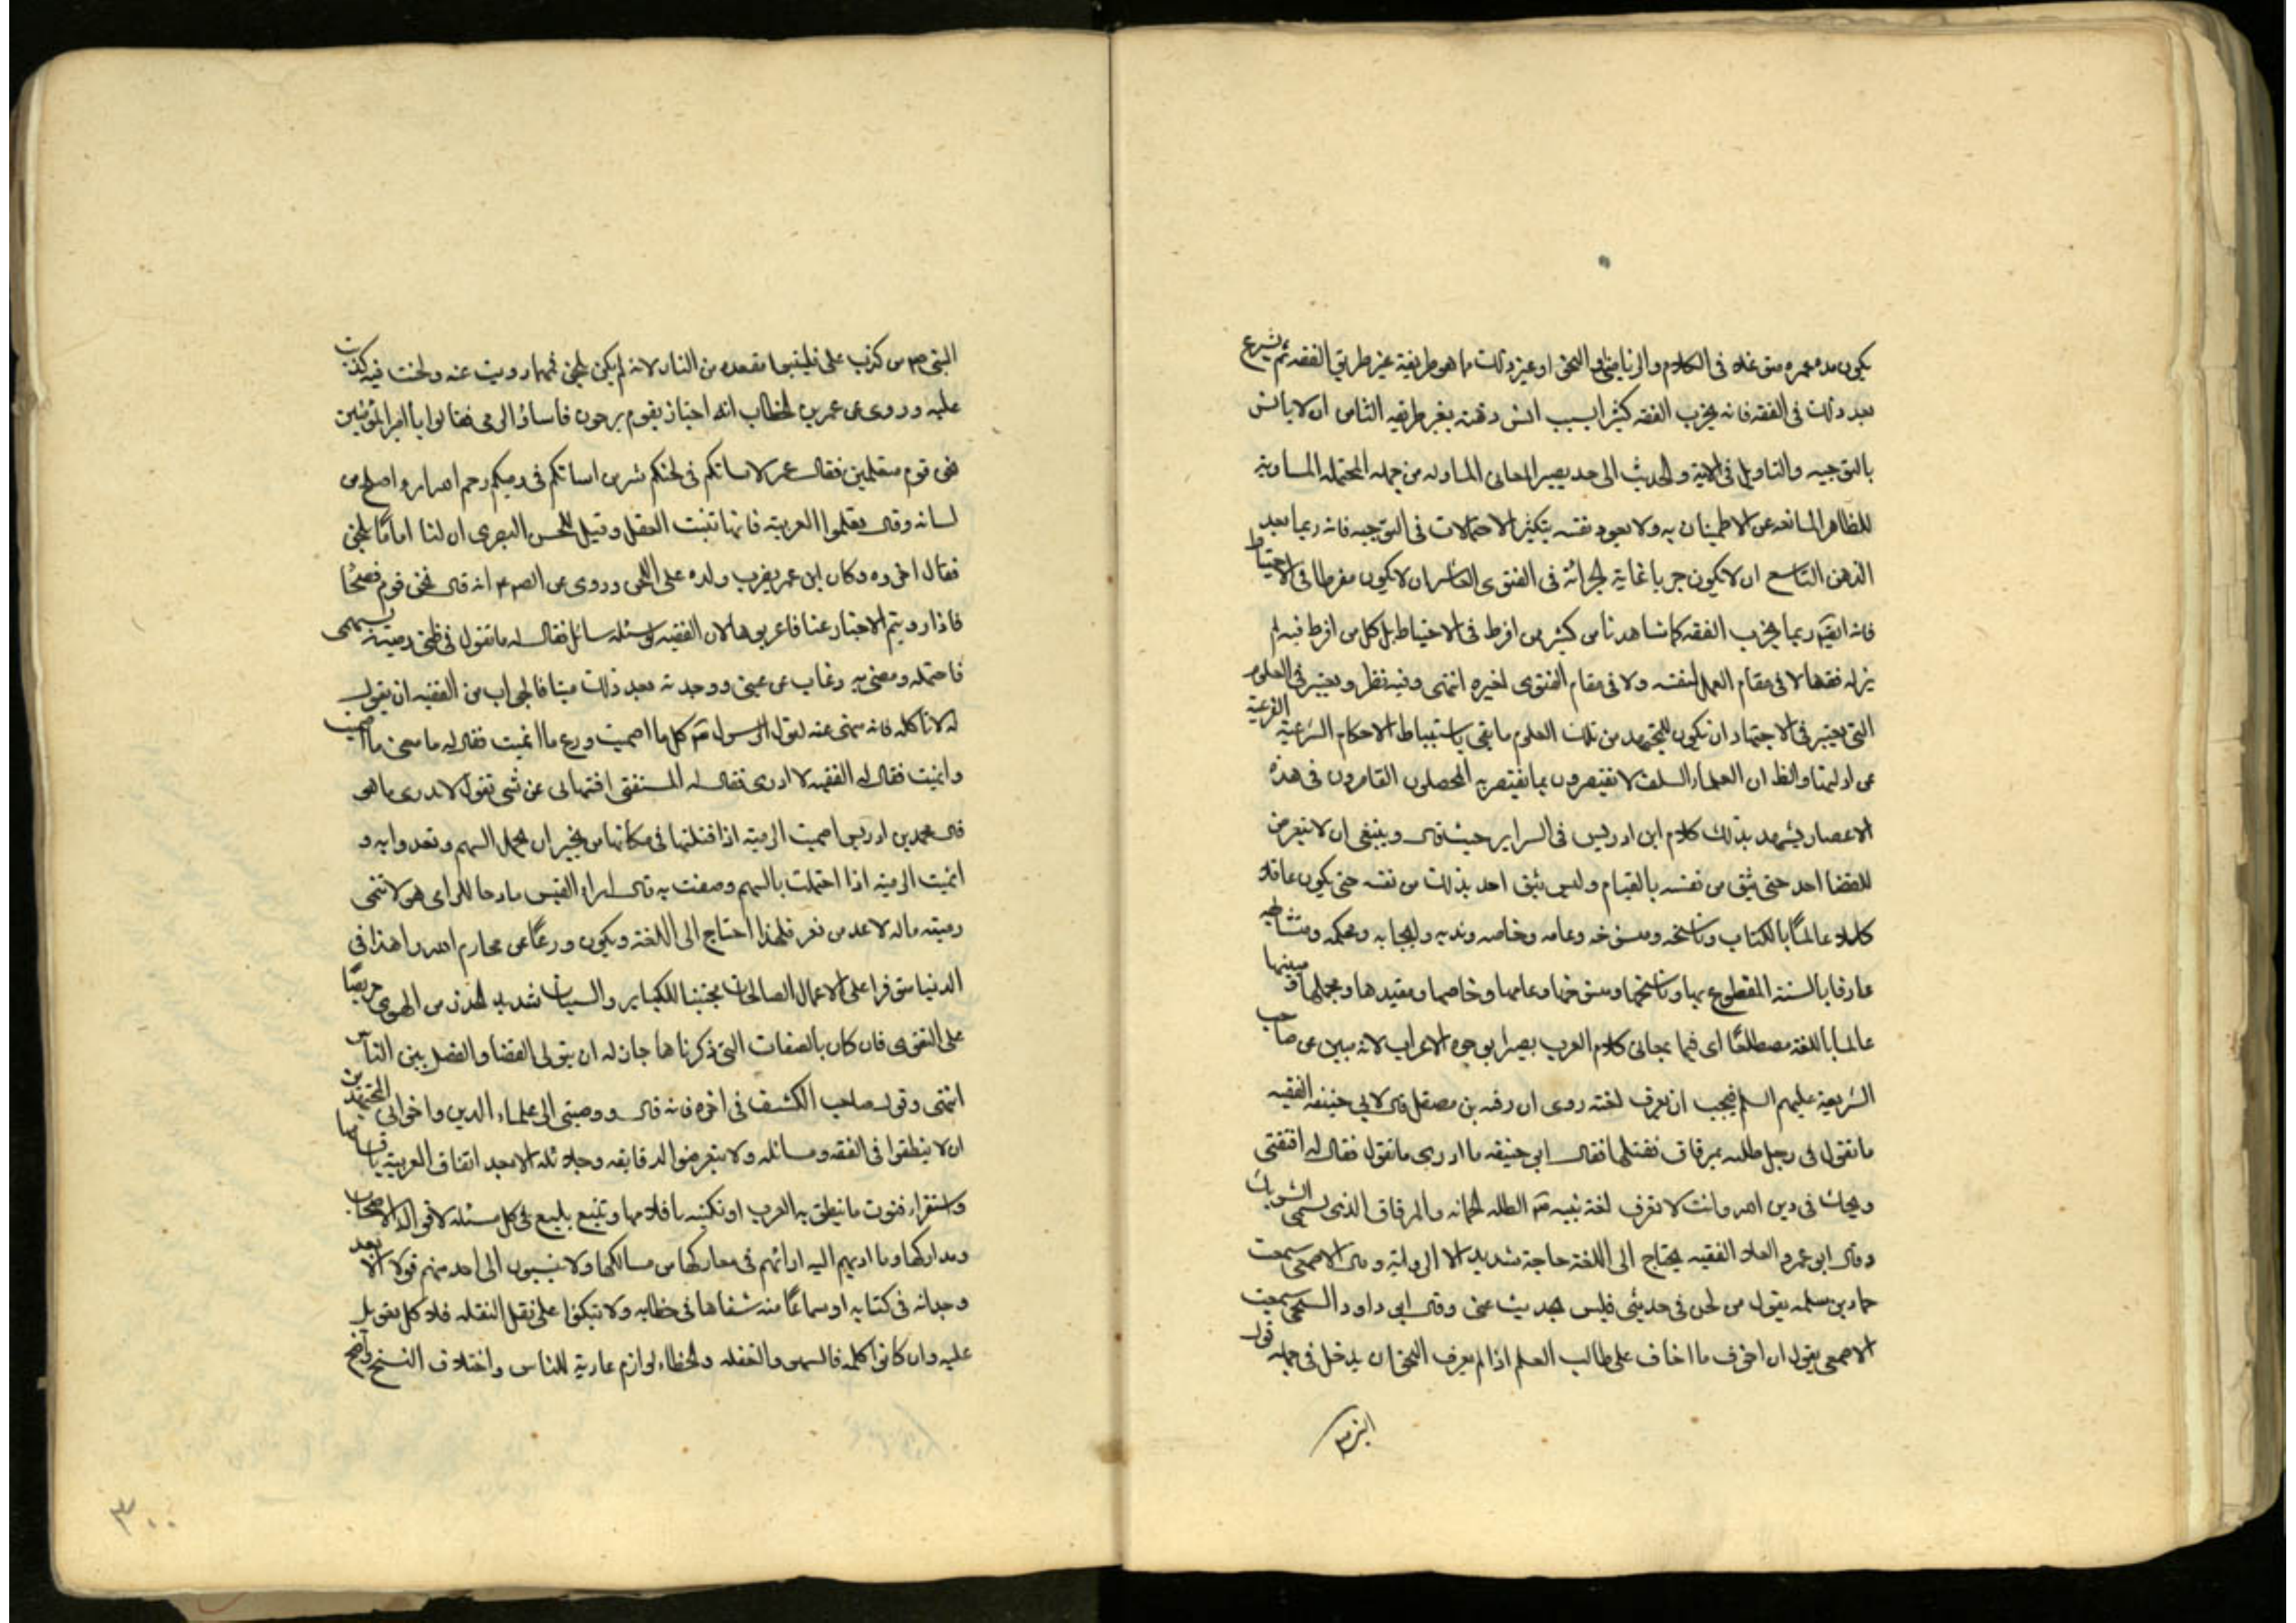 يكون مدة عمره متوغلا في الكلام والرياضي او النحو او غير ذلك مما هو طريقية غير طريق الفقه ثم يشرع
بعد ذلك في الفقه فانه يخرب الفقه كثيرا بسبب انس ذهنه بغير طريقه الثامن ان لا يانس
بالتوجيه والتاويل في الاية والحديث الى حد يصير المعاني الماوله من جمله المحتمله المساوية
للظاهر المانعه عن الاطمينان به ولا يعود نفسه بتكثير الاحتمالات في التوجيه فانه ربما يعيد
الذهن التاسع ان لا يكون جريا غاية الجرائة في الفتوى العاشر ان لا يكون مفرطا في الاحتياط
فانه ايضا ربما يخرب الفقه كما شاهدنا من كثير من افرط في الاحتياط بل كل من افرط فيه لم
نر له فقها لا في مقام العمل لنفسه ولا في مقام الفتوى لغيره انتهى وفيه نظر ويعتبر في العلوم
التي يعتبر في الاجتهاد ان يكون للمجتهد من تلك العلوم ما يفي باستنباط الاحكام الشرعية الفرعية
عن ادلتها والظ ان العلماء السلف لا يقتصرون بما يقتصر به المحصلون القاصرون في هذه
الاعصار يشهد بذلك كلام ابن ادريس في السراير حيث قال وينبغي ان لا يتعرض
للقضا احد حتى يثق من نفسه بالقيام وليس يثق احد بذلك من نفسه حتى يكون عاقلا
كاملا عالما بالكتاب وناسخه ومنسوخه وعامه وخاصه وندبه وايجابه ومحكمه ومتشابهه
عارفا بالسنة المقطوع بها وناسخها ومنسوخها وعامها وخاصها ومقيدها ومجملها ومبينها
عالما باللغة مضطلعا اي قيما بمعاني كلام العرب بصيرا بوجوه الاعراب لانه مبين عن صاحب
الشريعة عليهم السلم فيجب ان يعرف لغته روى ان رقبه بن مصقل قال لابي حنيفه الفقيه
ما تقول في رجل طلسه بمرقاق فقتلها فقال ابي حنيفه ما ادرى ما تقول فقال له افتفتي
ويحك في دين الله وانت لا تعرف لغة نبيه ص الطله الحمانه والمرقاق الذي يسمى الشوبك
وقال ابو عمرو العلا الفقيه يحتاج الى اللغة حاجة شديدة الا الرواية وقال الاصمعي سمعت
حماد بن سلمه يقول من لحن في حديثي فليس يحديث عني وقال ابي داود السنجي سمعت
الاصمعي يقول ان اخوف ما اخاف على طالب العلم اذا لم يعرف النحو ان يدخل في جمله قول
النبي ص من كذب على فليتبوا مقعده من النار لانه لم يكن يلحن فمهما رويت عنه ولحنت فيه كذبت
عليه وروى عن عمر بن الخطاب انه اجتاز بقوم يرمون فاساؤ الرمى فقالوا يا أمير المؤمنين
نحن قوم متعلمين فقال عمر لاساتكم في لحنكم شر من اساتكم في رميكم رحم الله امرا اصلح من
لسانه وقال تعلموا العربية فانها تثبت العقل وقيل للحسن البصرى ان لنا اماما يلحن
فقال اخروه وكان ابن عمر يضرب ولده على اللحن وروى عن الصم انه قال نحن قوم فصحا
فاذا رويتم الاخبار عنا فاعربوها لان الفقيه لو سئله سائل فقال له ما تقول في ظبى رميته بسهمى
فاحتمله ومضى به وغاب عن عيني ووجدته بعد ذلك ميتا فالجواب من الفقيه ان يقول
له لا تاكله فانه نهى عنه لقول الرسول ص كل ما اصميت ودع ما انميت فقال له ما معنى ما اصميت
وانميت فقال له الفقيه لا ادرى فقال له المستفتى افتنهاني عن شى تقول لا تدرى ما هو
قال محمد بن ادريس اصميت الرمية اذا قتلتها في مكانها من غير ان يحمل السهم وتعدوا به و
انميت الرميه اذا احتملت بالسهم ومضت به قال امراء القيس مادحا للرامي هو لا تنمى
رميته ماله لا عد من نفر فلهذا احتاج الى اللغة ويكون ورعا عن محارم الله زاهدا في
الدنيا متوفرا على الاعمال الصالحات مجتنبا للكباير والسيات شديد الحذر من الهوى حريصا
على التقوى فان كان بالصفات التي ذكرناها جاز له ان يتولى القضا والفصل بين الناس
انتهى وقول صاحب الكشف في اخره فانه قال ووصيتي الى علماء الدين واخواني المجتهدين
ان لا ينطقوا في الفقه ومسائله ولا يتعرضوا لدقايقه وجلائله الا بعد اتقان العربية باقسامها
واستقراء فنون ما نطق به العرب او نكتبه باقلامها وتتبع بليغ في كل مسئلة لاقوال الاصحاب
ومداركها وما اديهم اليه ارائهم في معاركها من مسالكها ولا ينسبون الى احد منهم قولا الا بعد
وجدانه في كتابه او سماعا منه شفاها في خطابه ولا يتكلوا على نقل النقله فلا كل تعويل
عليه وان كانوا كلمه فالسهو والغفله والخطاء لوازم عارية للناس واختلاف النسخ واضح
٣٠٠